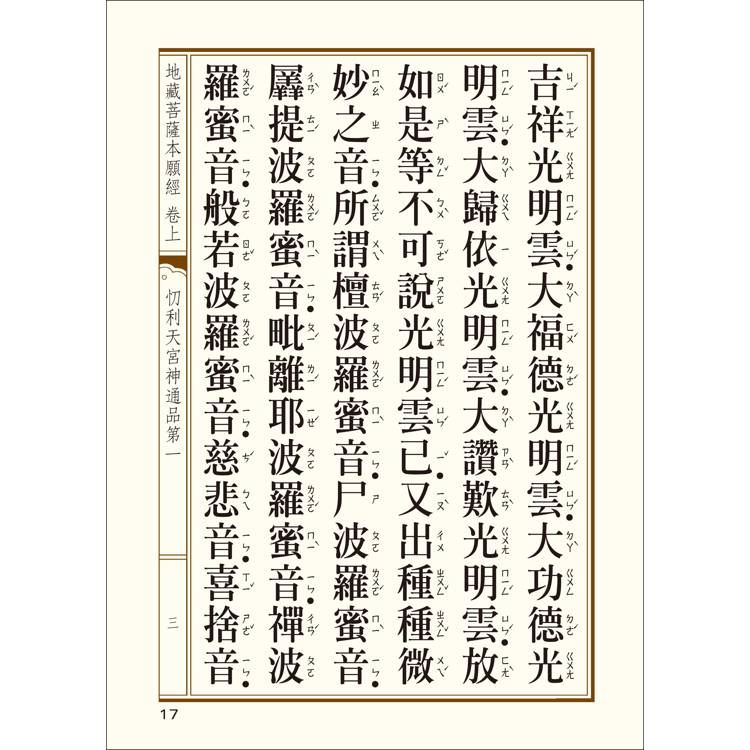 吉祥光明雲大福德光明雲大功德光
明雲大歸依光明雲大讚歎光明雲放
如是等不可說光明雲已又出種種微
妙之音所謂檀波羅蜜音尸波羅蜜音
羼提波羅蜜音毗離耶波羅蜜音禪波
羅蜜音般若波羅蜜音慈悲音喜捨音
地藏菩薩本願經 卷上
忉利天宮神通品第一
三
17